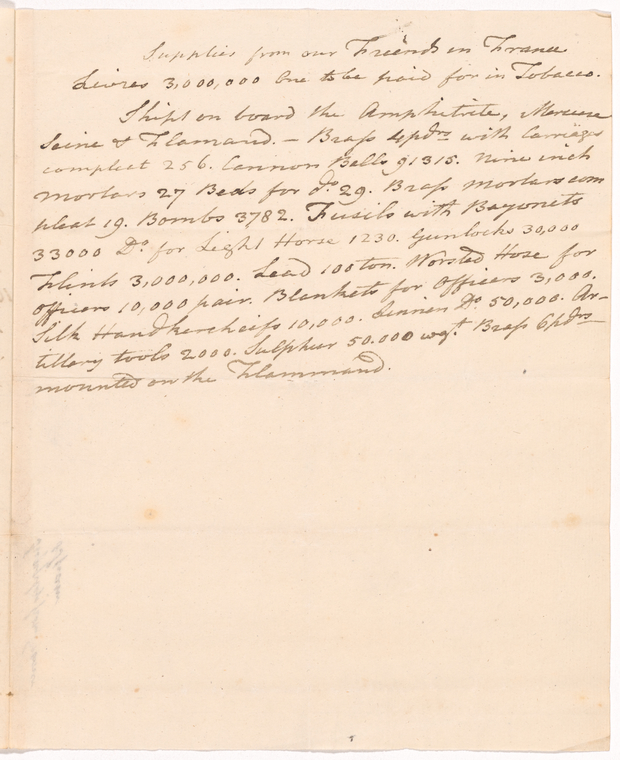 Supplies from our Friends in France
Livres 3,000,000 One to be paid for in Tobacco.
Shipt on board the Amphitrite, Mercure
Seine & Flamand. – Brass 4pdrs with Carriages
compleat 256. Cannon Balls 91315. Nine inch
mortars 27 Beds for do. 29. Brass mortars com
pleat 19. Bombs 3782. Fusils with Bayonets
33000 Do. for Light Horse 1230. Gunlocks 30,000
Flints 3,000,000. Lead 100 ton. Worsted Hose for
officers 10,000 pair. Blankets for Officers 3,000.
Silk Handkercheifs 10,000. Linnen Do. 50,000. Ar-
tillary tools 2000. Sulphur 50.000 wgt. Brass 6pdrs
mounted on the Flammand.